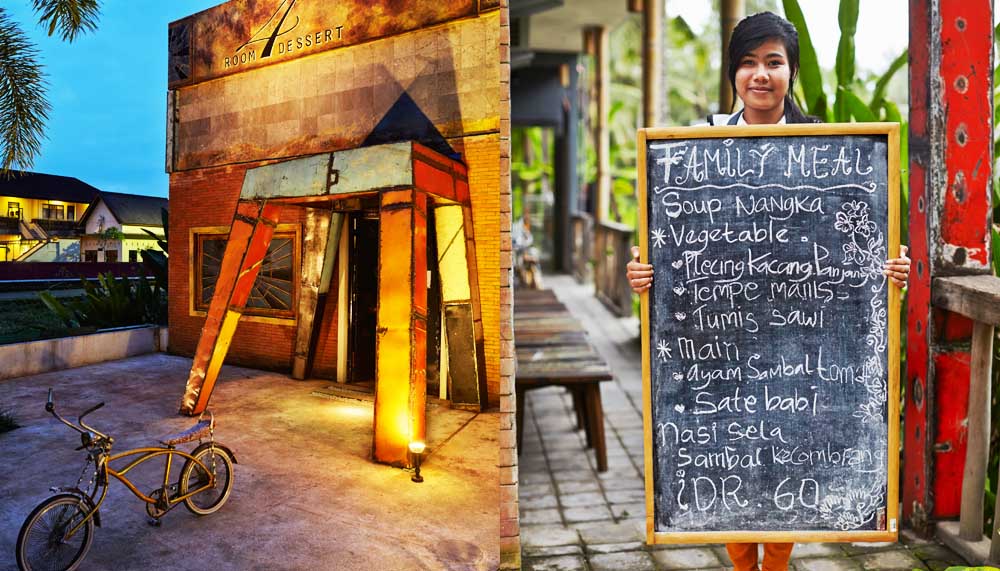 ROOM 4 DESSERT
FAMILY MEAL
Soup Nangka
* Vegetable.
Plecing Kacang Panjang
Tempe manis
Tumis sawi
* main
ayam Sambal tomat
Sate babi
nasi sela
Sambal kecombrang
iDR. 60